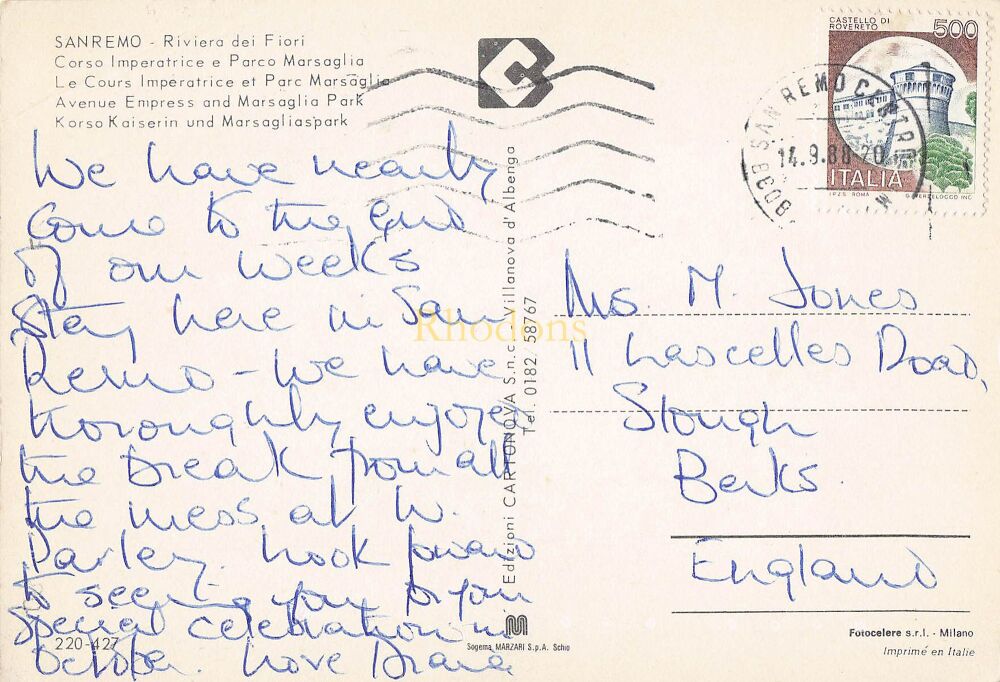 SANREMO - Riviera dei Fiori
Corso Imperatrice e Parco Marsaglia
Le Cours Impératrice et Parc Marsaglia
Avenue Empress and Marsaglia Park
Korso Kaiserin und Marsagliaspark
We have nearly
come to the end
of our weeks
stay here in San
Remo - We have
thoroughly enjoyed
the break from all
the mess at W.
Parley. Look forward
to seeing you for your
special celebration in
October. Love Diana
220-427
Edizioni CARTONOVA S.n.c. Villanova d'Albenga
Tel. 0182 58767
Rhodons
M
Sogema MARZARI S.p.A. Schio
CASTELLO DI
ROVERETO
500
ITALIA
I.P.Z.S. ROMA
SANREMO CENTRO
14.9.88-20
Ms. M. Jones
11 Lascelles Road,
Slough
Berks.
England
Fotocelere s.r.l. - Milano
Imprimé en Italie